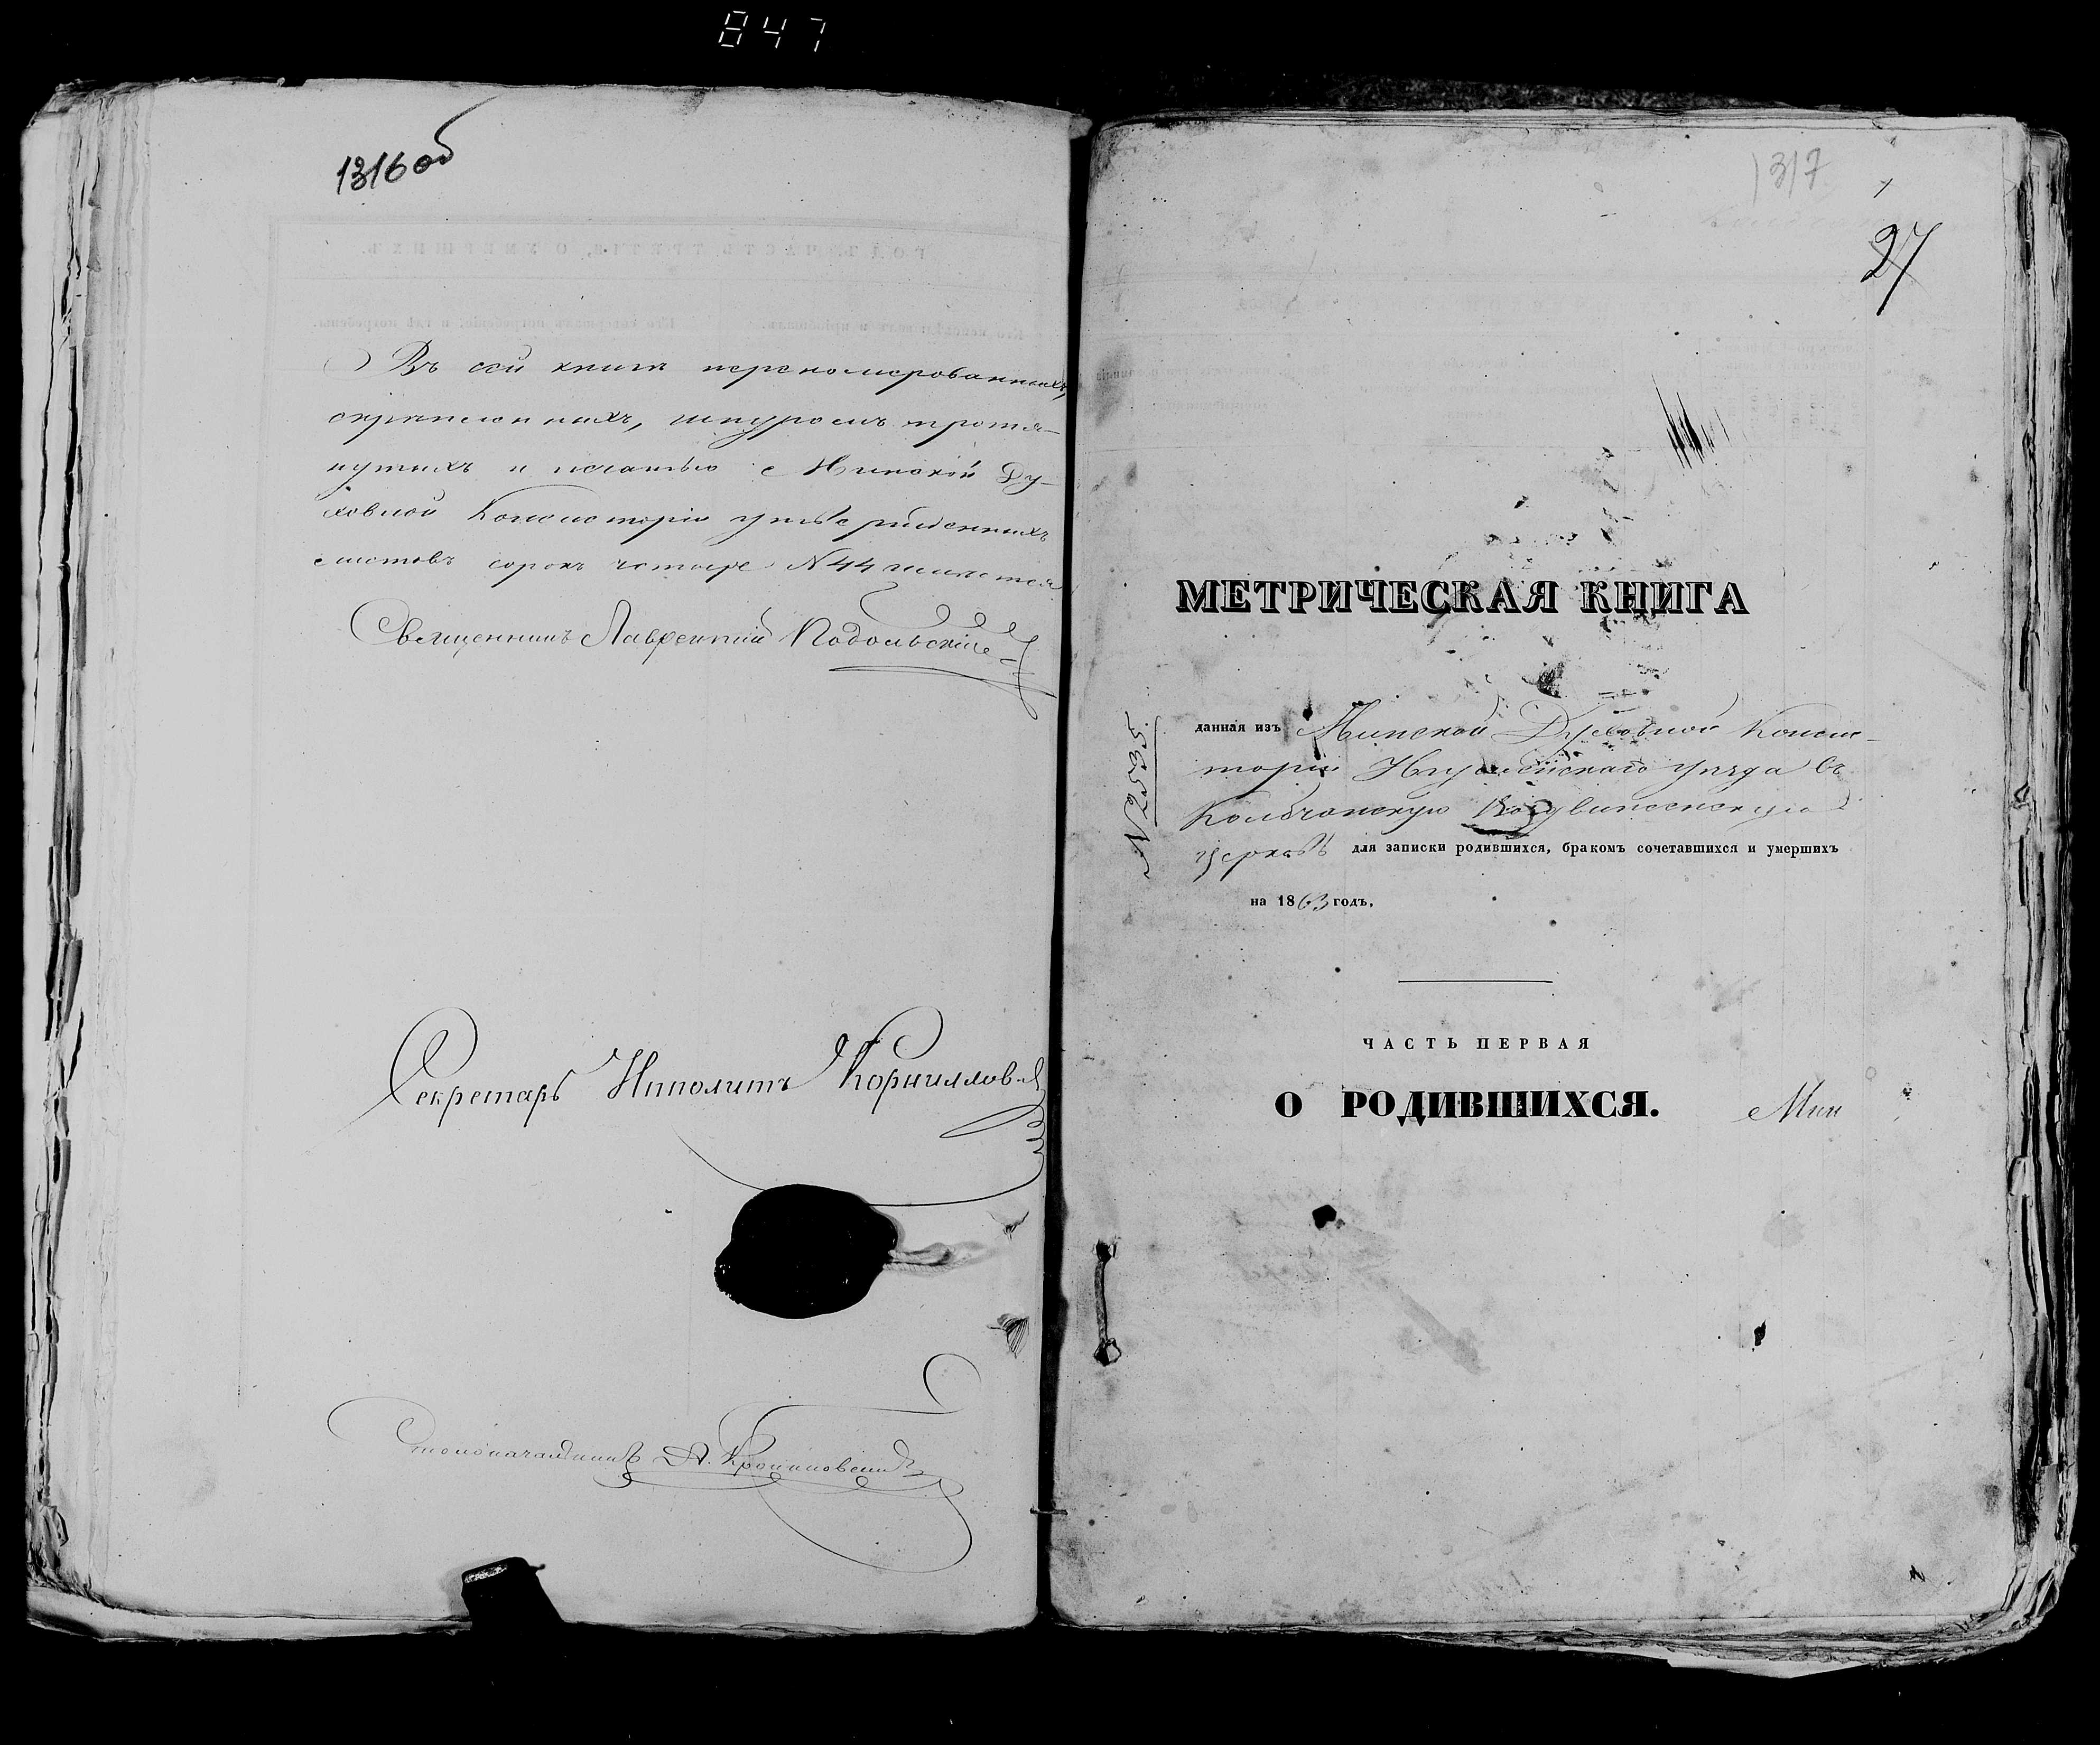 847
1316об
Въ сей книгѣ переномерованныхъ,
скрѣпленныхъ, шнуромъ протя-
нутыхъ и печатью Минской Ду-
ховной Консисторіи утвержденныхъ
листовъ сорокъ четыре N 44 имѣется
Священникъ Лаврентій Подольскій
Секретарь Ипполитъ Корниллов
Столоначальникъ А.
1317
27
МЕТРИЧЕСКАЯ КНИГА
N 2535.
данная изъ Минской Духовной Консис-
торіи Игуменскаго уѣзда въ
Колбчанскую Воздвиженскую
церковь для записки родившихся, бракомъ сочетавшихся и умершихъ
на 1863 годъ,
ЧАСТЬ ПЕРВАЯ
О РОДИВШИХСЯ.
Мин